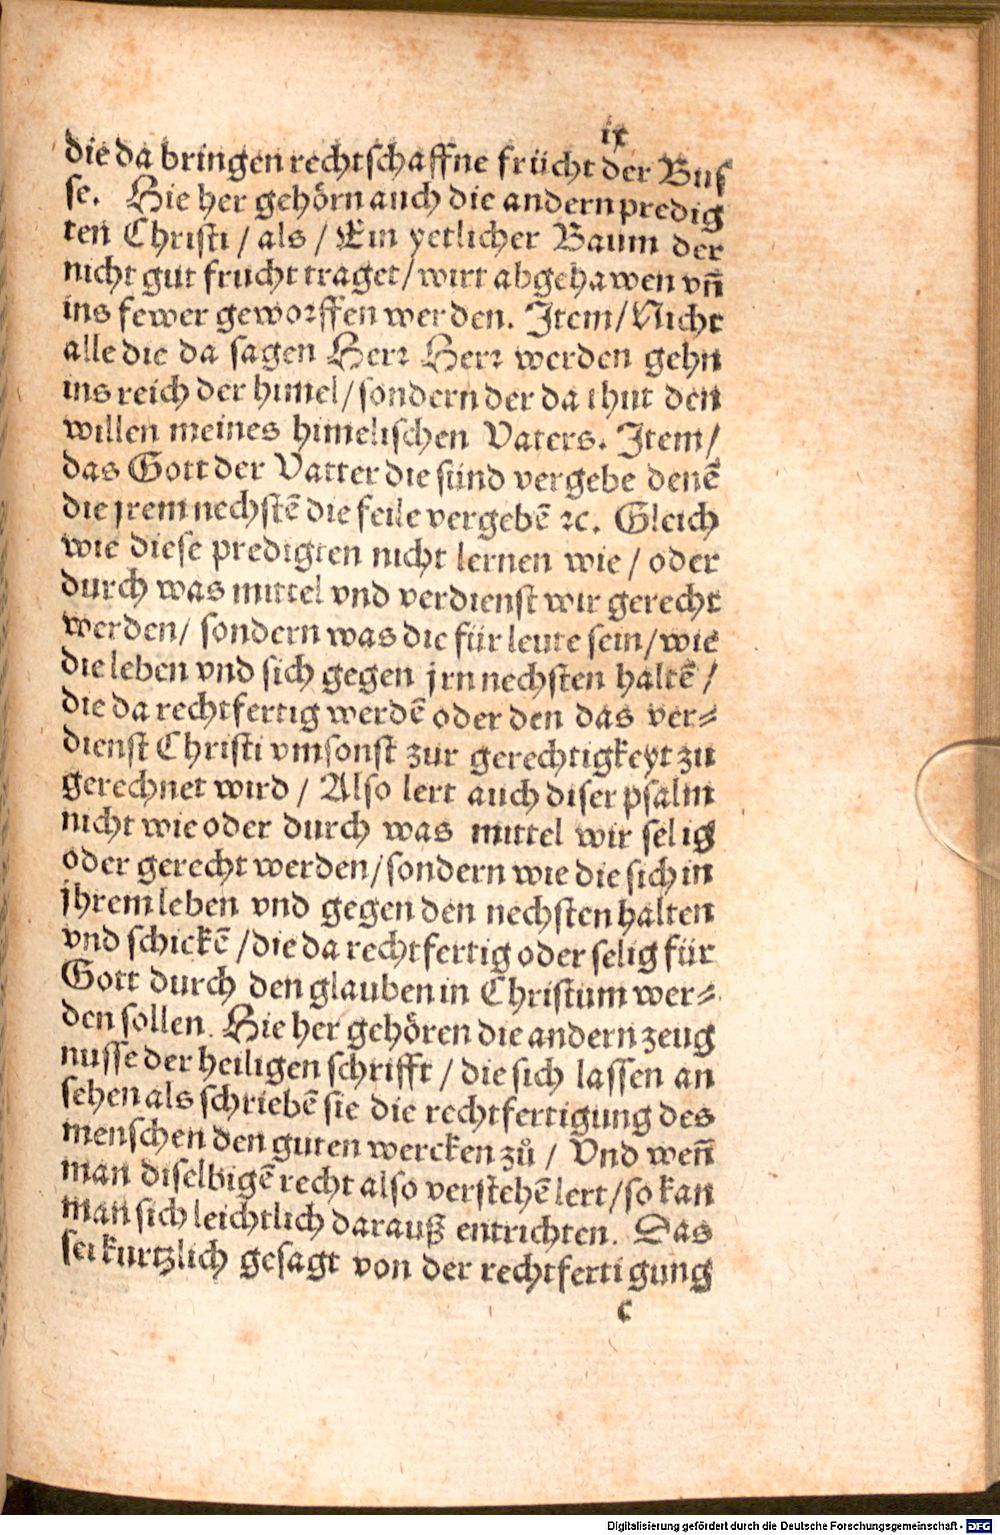 ix
die da bringen rechtschaffne frücht der Bus
se. Hie her gehörn auch die andern predig
ten Christi / als / Ein yetlicher Baum der
nicht gut frucht traget / wirt abgehawen vñ
ins fewer geworffen werden. Item / Nicht
alle die da sagen Herr Herr werden gehn
ins reich der himel / sondern der da thut den
willen meines himelischen Vaters. Item /
das Gott der Vatter die sünd vergebe denẽ
die jrem nechstẽ die feile vergebẽ ⁊c. Gleich
wie diese predigten nicht lernen wie / oder
durch was mittel vnd verdienst wir gerecht
werden / sondern was die für leute sein / wie
die leben vnd sich gegen jrn nechsten haltẽ /
die da rechtfertig werdẽ oder den das ver⸗
dienst Christi vmsonst zur gerechtigkeyt zu
gerechnet wird / Also lert auch diser psalm
nicht wie oder durch was mittel wir selig
oder gerecht werden / sondern wie die sich in
jhrem leben vnd gegen den nechsten halten
vnd schickẽ / die da rechtfertig oder selig für
Gott durch den glauben in Christum wer⸗
den sollen. Hie her gehören die andern zeug
nusse der heiligen schrifft / die sich lassen an
sehen als schriebẽ sie die rechtfertigung des
menschen den guten wercken zů / Vnd weñ
man diselbigẽ recht also verstehẽ lert / so kan
man sich leichtlich darauß entrichten. Das
sei kurtzlich gesagt von der rechtfertigung
c
Digitalisierung gefördert durch die Deutsche Forschungsgemeinschaft - DFG